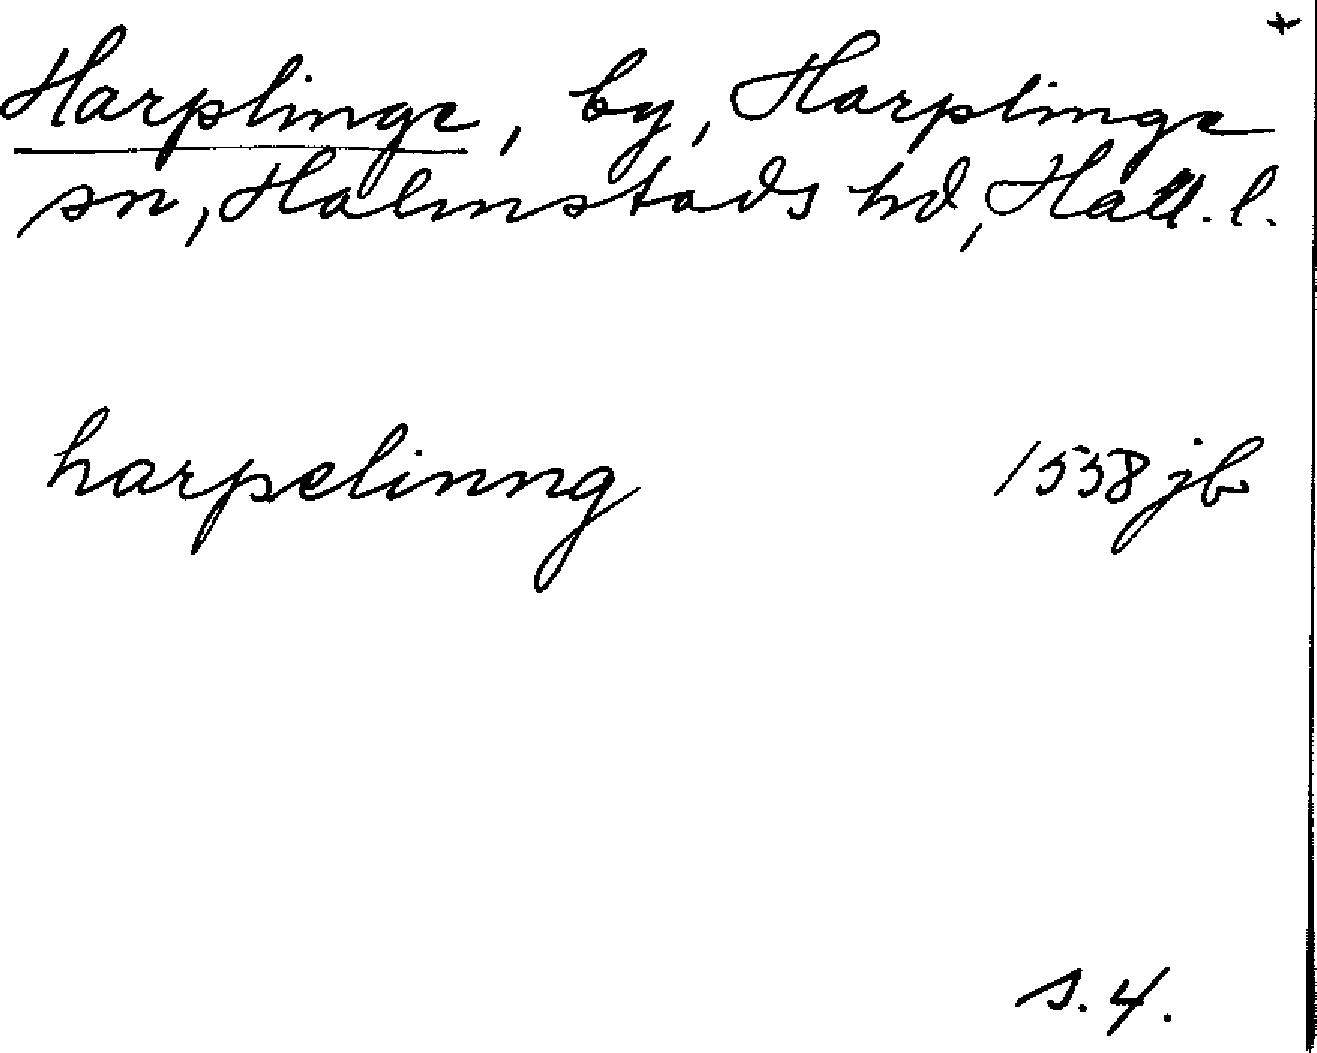 +
Harplinge, by, Harplinge
sn, Halmstads hd, Hall. l.
harpelinng 1558 jb
s. 4.